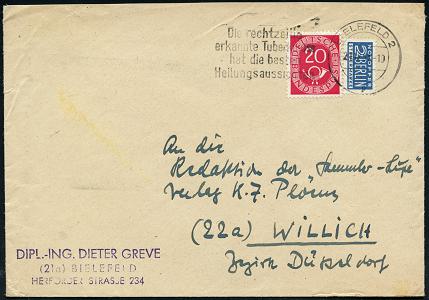 Die rechtzeitig
erkannte Tube
hat die bes
Heilungsaussi
BIELEFELD 2
DEUTSCHE BUNDESPOST
20
NOTOPFER
2 BERLIN
STEUERMARKE
An die
Redaktion der "Sammler-Lupe"
Verlag K.F. Plörms
(22a) WILLICH
Bezirk Düsseldorf
DIPL.-ING. DIETER GREVE
(21a) BIELEFELD
HERFORDER STRASSE 234